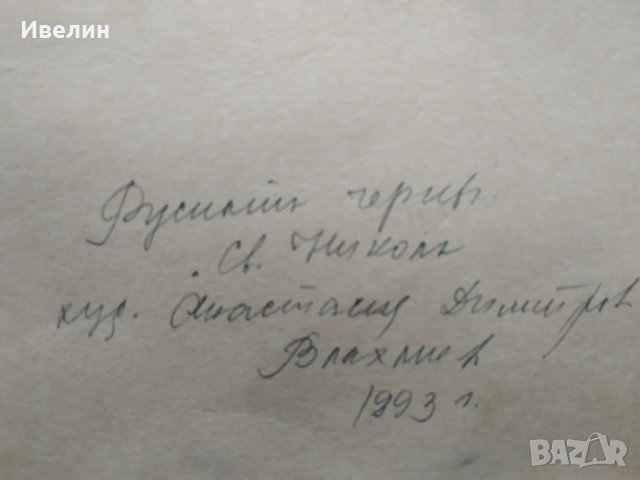 Ивелин
Руската черква
Св. Никола
худ. Анастасия Димитров
Влахлиев
1993 г.
BAZAR